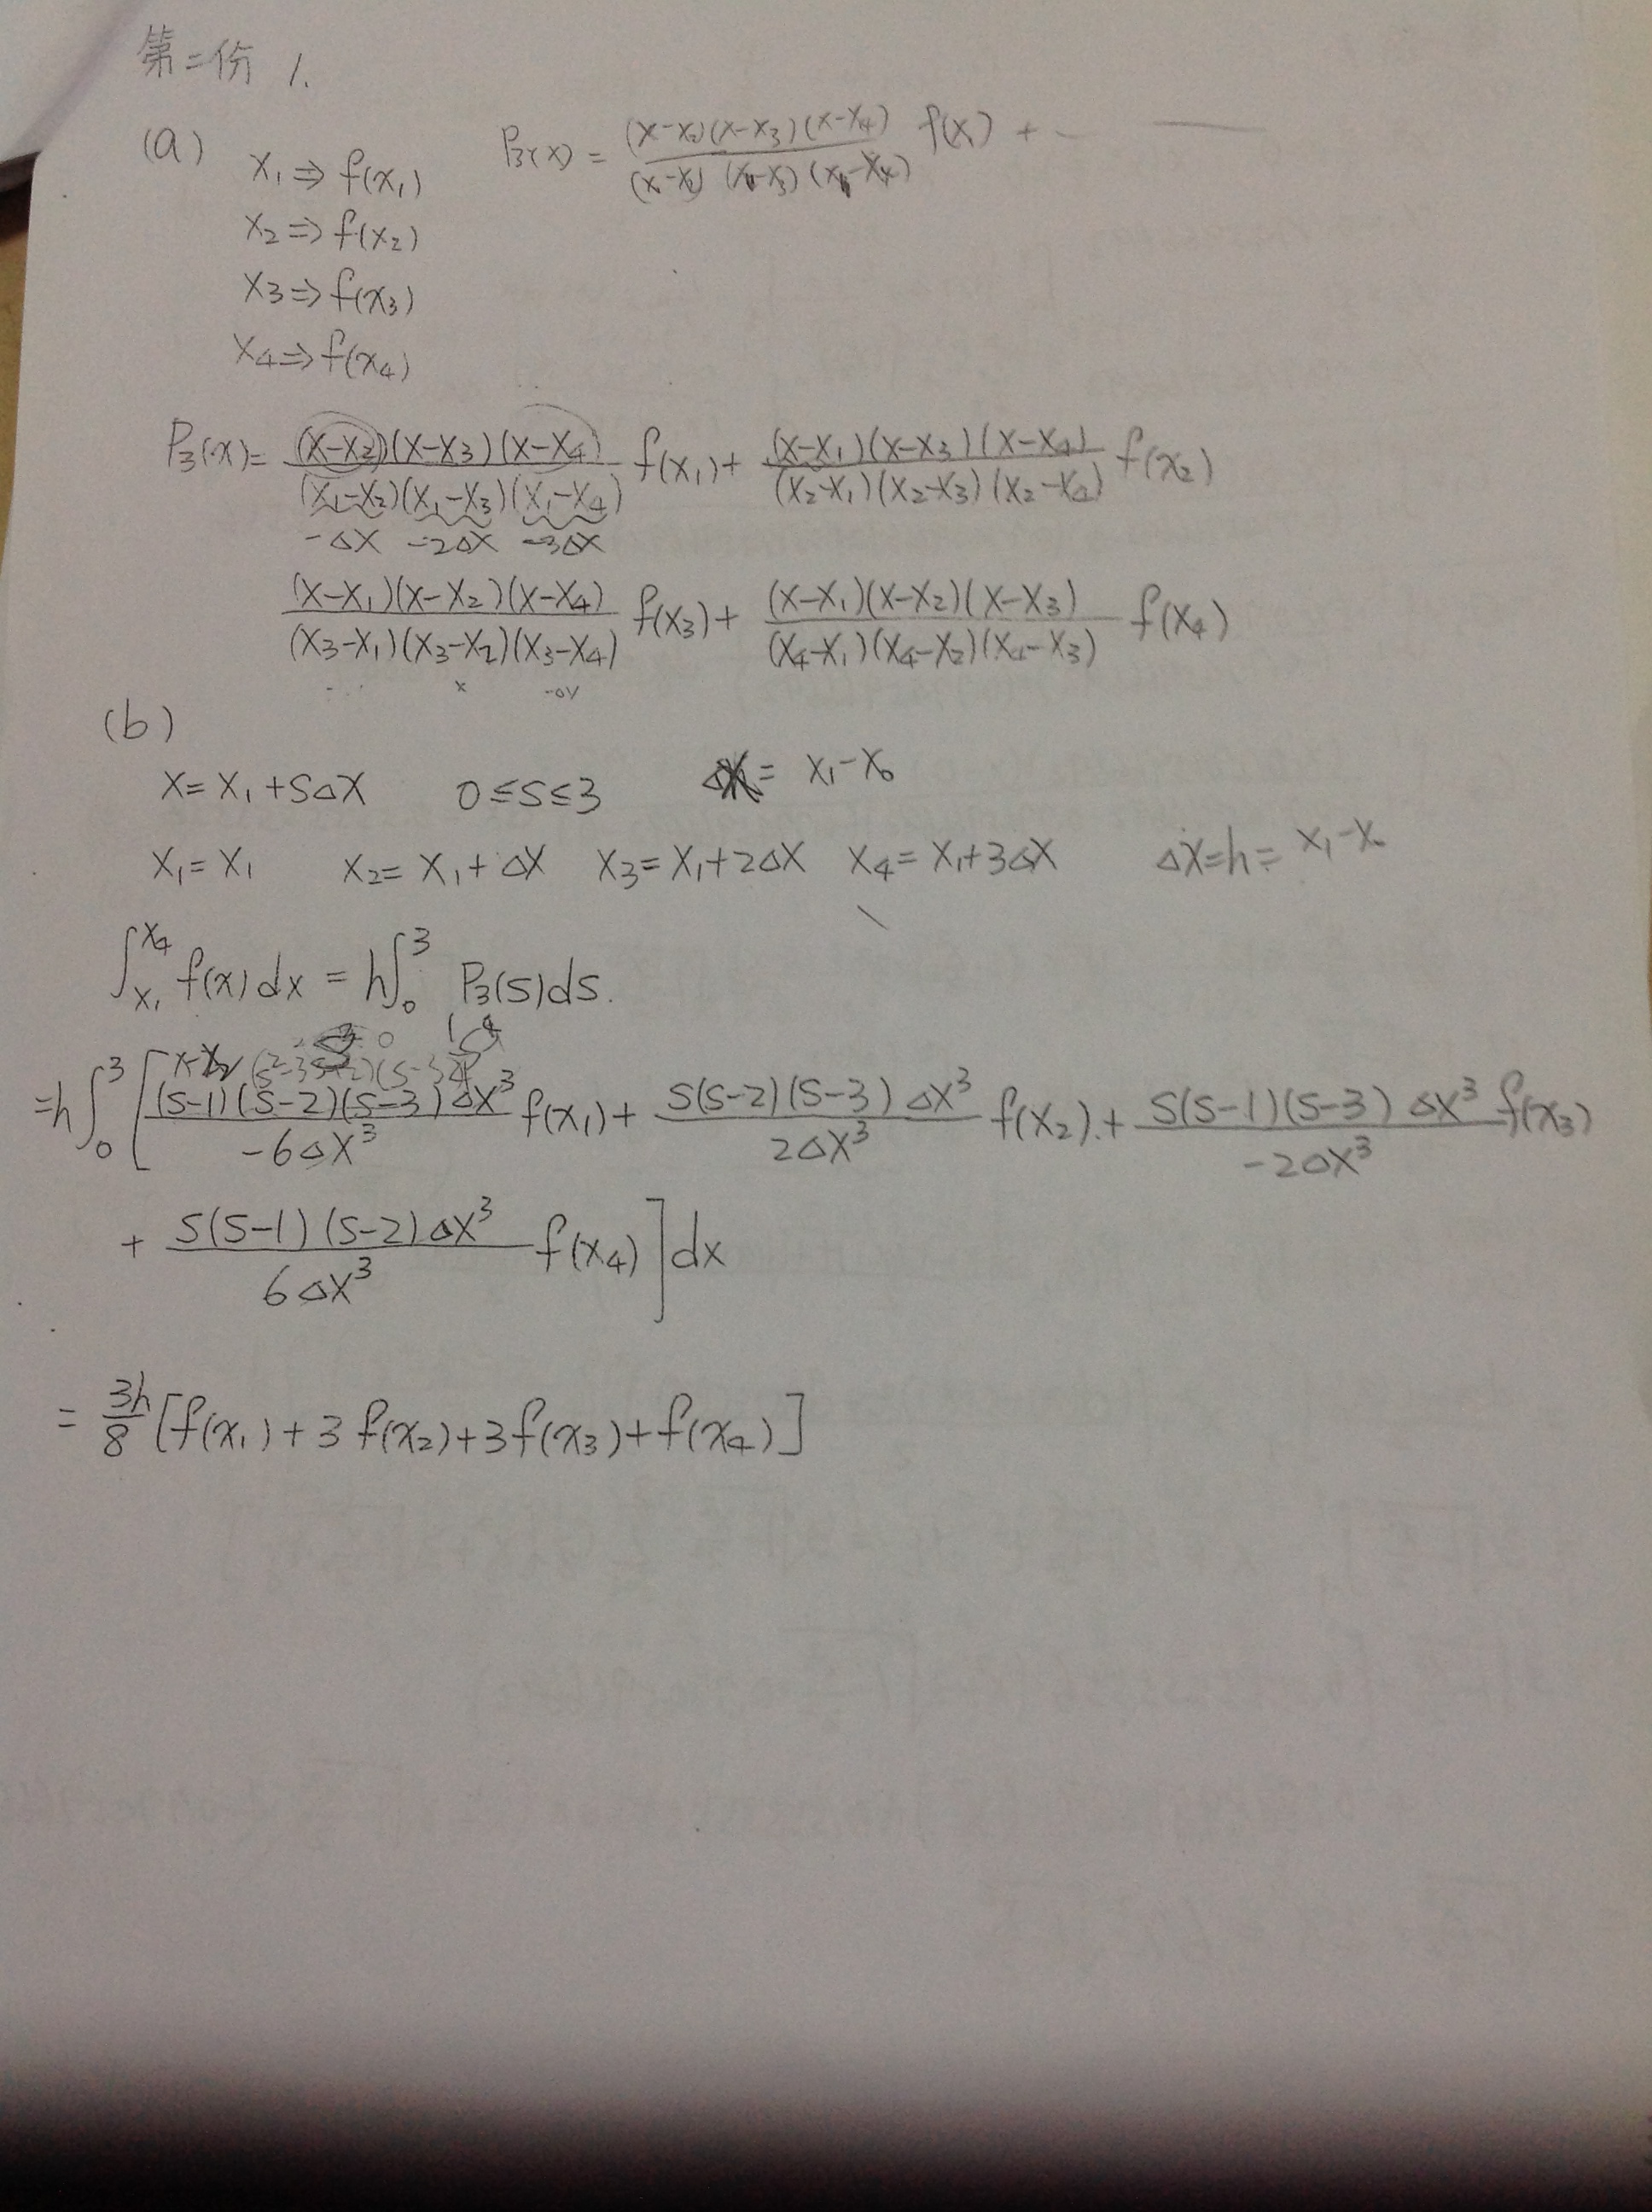 第二份 1.
(a) x₁ ⇒ f(x₁) P₃(x) = (x-x₂)(x-x₃)(x-x₄) / (x₁-x₂)(x₁-x₃)(x₁-x₄) f(x₁) + ---
x₂ ⇒ f(x₂)
x₃ ⇒ f(x₃)
x₄ ⇒ f(x₄)
P₃(x) = (x-x₂)(x-x₃)(x-x₄) / (x₁-x₂)(x₁-x₃)(x₁-x₄) f(x₁) + (x-x₁)(x-x₃)(x-x₄) / (x₂-x₁)(x₂-x₃)(x₂-x₄) f(x₂)
-△x -2△x -3△x
(x-x₁)(x-x₂)(x-x₄) / (x₃-x₁)(x₃-x₂)(x₃-x₄) f(x₃) + (x-x₁)(x-x₂)(x-x₃) / (x₄-x₁)(x₄-x₂)(x₄-x₃) f(x₄)
(b)
x = x₁ + s△x 0 ≤ s ≤ 3 = x₁-x₀
x₁ = x₁ x₂ = x₁ + △x x₃ = x₁ + 2△x x₄ = x₁ + 3△x △x = h = x₁-x₀
∫_{x₁}^{x₄} f(x)dx = h∫₀³ P₃(s)ds.
= h∫₀³ [ (s-1)(s-2)(s-3)△x³ / -6△x³ f(x₁) + s(s-2)(s-3)△x³ / 2△x³ f(x₂) + s(s-1)(s-3)△x³ / -2△x³ f(x₃)
+ s(s-1)(s-2)△x³ / 6△x³ f(x₄) ] dx
= 3h/8 [f(x₁) + 3f(x₂) + 3f(x₃) + f(x₄)]